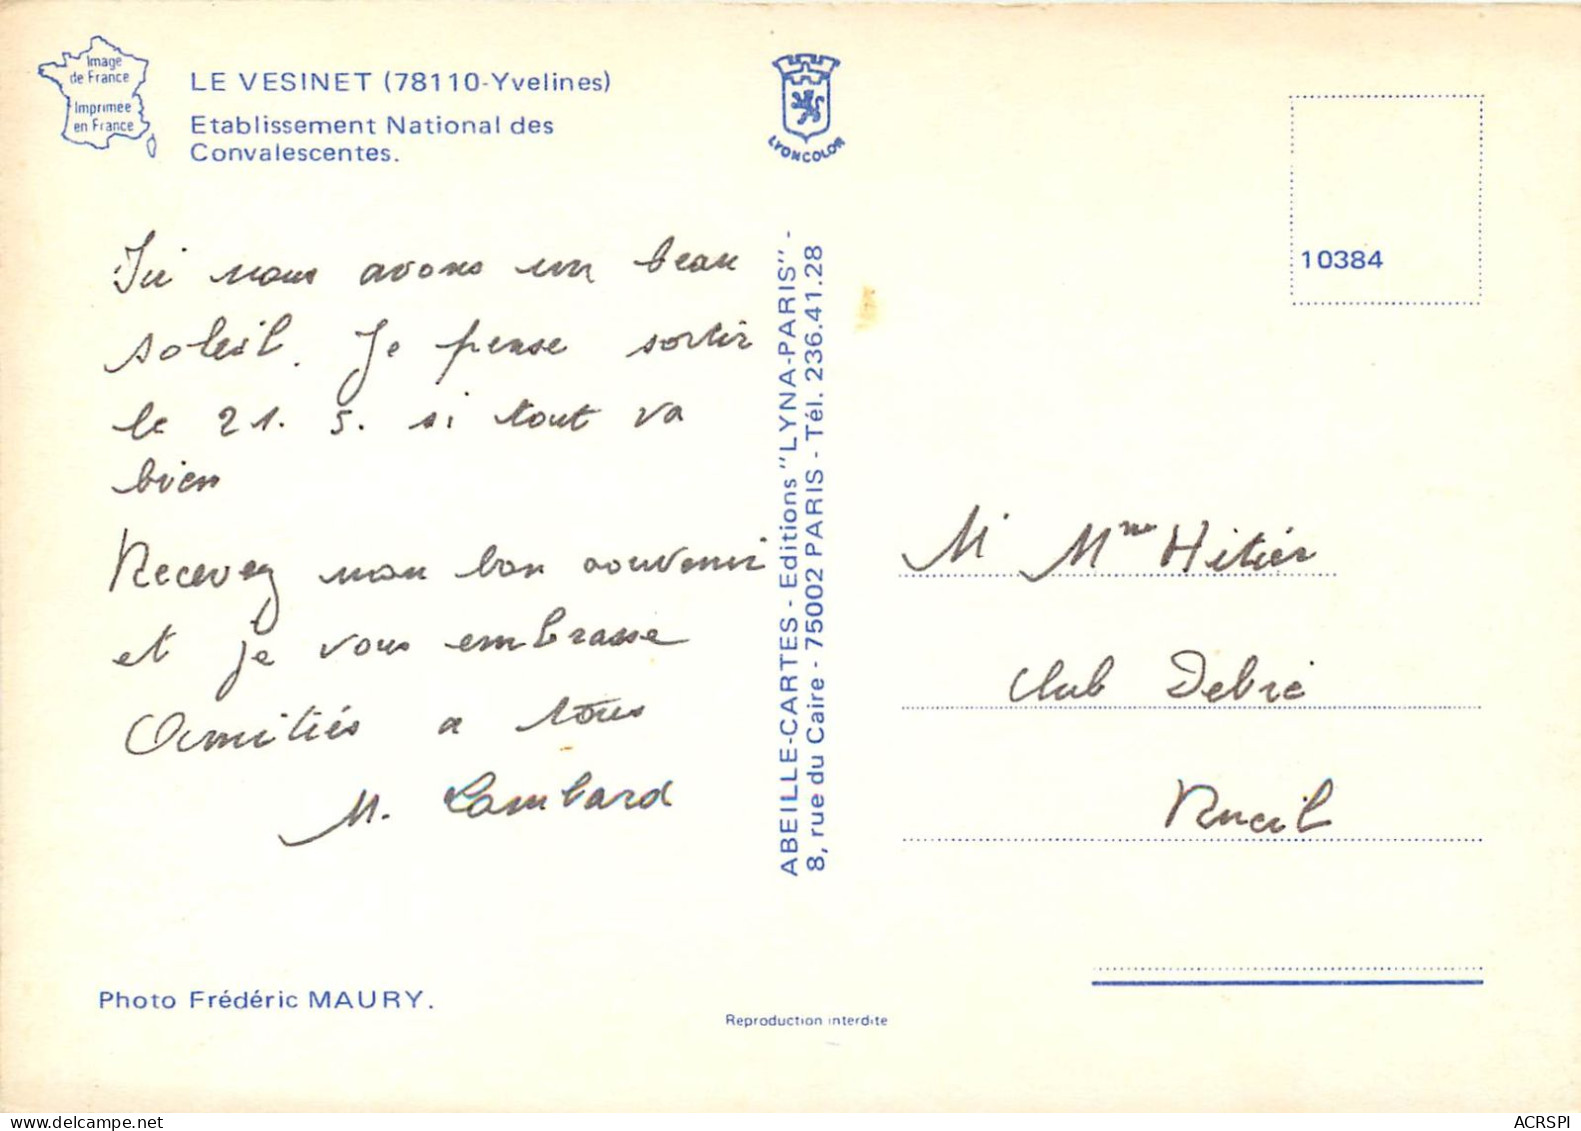 Image
de France
Imprimée
en France
LE VESINET (78110-Yvelines)
Etablissement National des
Convalescentes.
LYONCOLOR
10384
Ici nous avons un beau
soleil. Je pense sortir
le 21. 5. si tout va
bien
Recevez mon bon souvenir
et je vous embrasse
Amitiés a tous
M. Lombard
ABEILLE-CARTES - Editions "LYNA-PARIS" -
8, rue du Caire - 75002 PARIS - Tél. 236.41.28
M Mme Hitier
Club Debré
Rueil
Photo Frédéric MAURY.
Reproduction interdite
ACRSPI